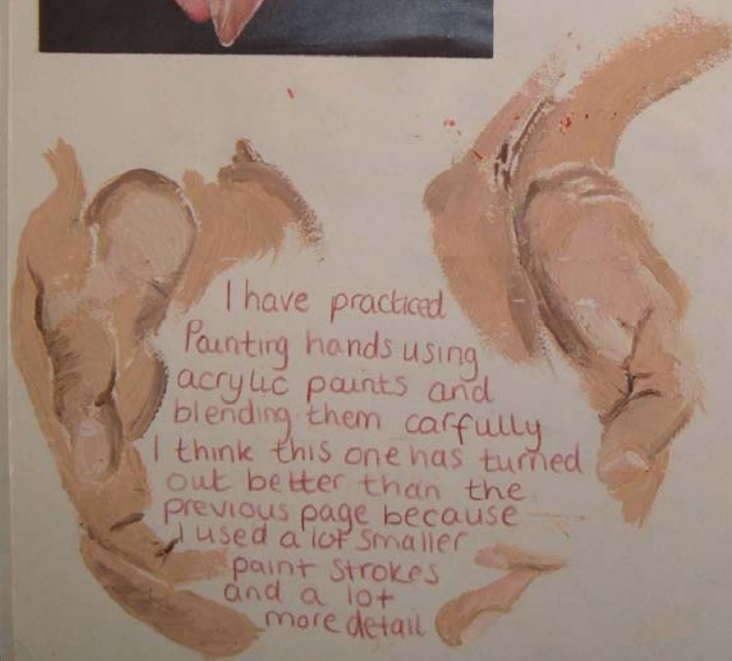 I have practiced
Painting hands using
acrylic paints and
blending them carfully
I think this one has turned
out better than the
previous page because
I used a lot smaller
paint strokes
and a lot
more detail